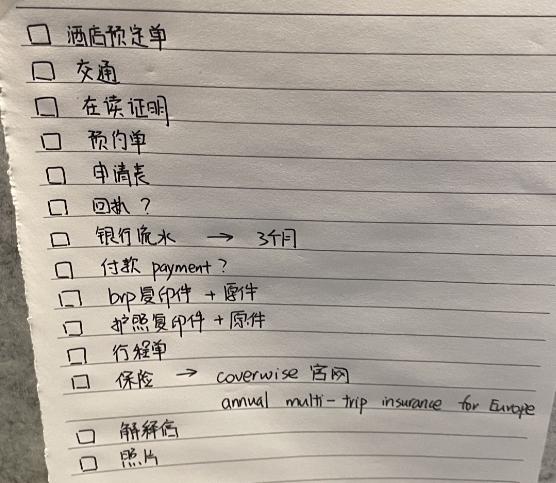 酒店预定单
交通
在读证明
预约单
申请表
回执？
银行流水 → 3个月
付款 payment？
brp复印件 + 原件
护照复印件 + 原件
行程单
保险 → coverwise 官网
annual multi-trip insurance for Europe
解释信
照片